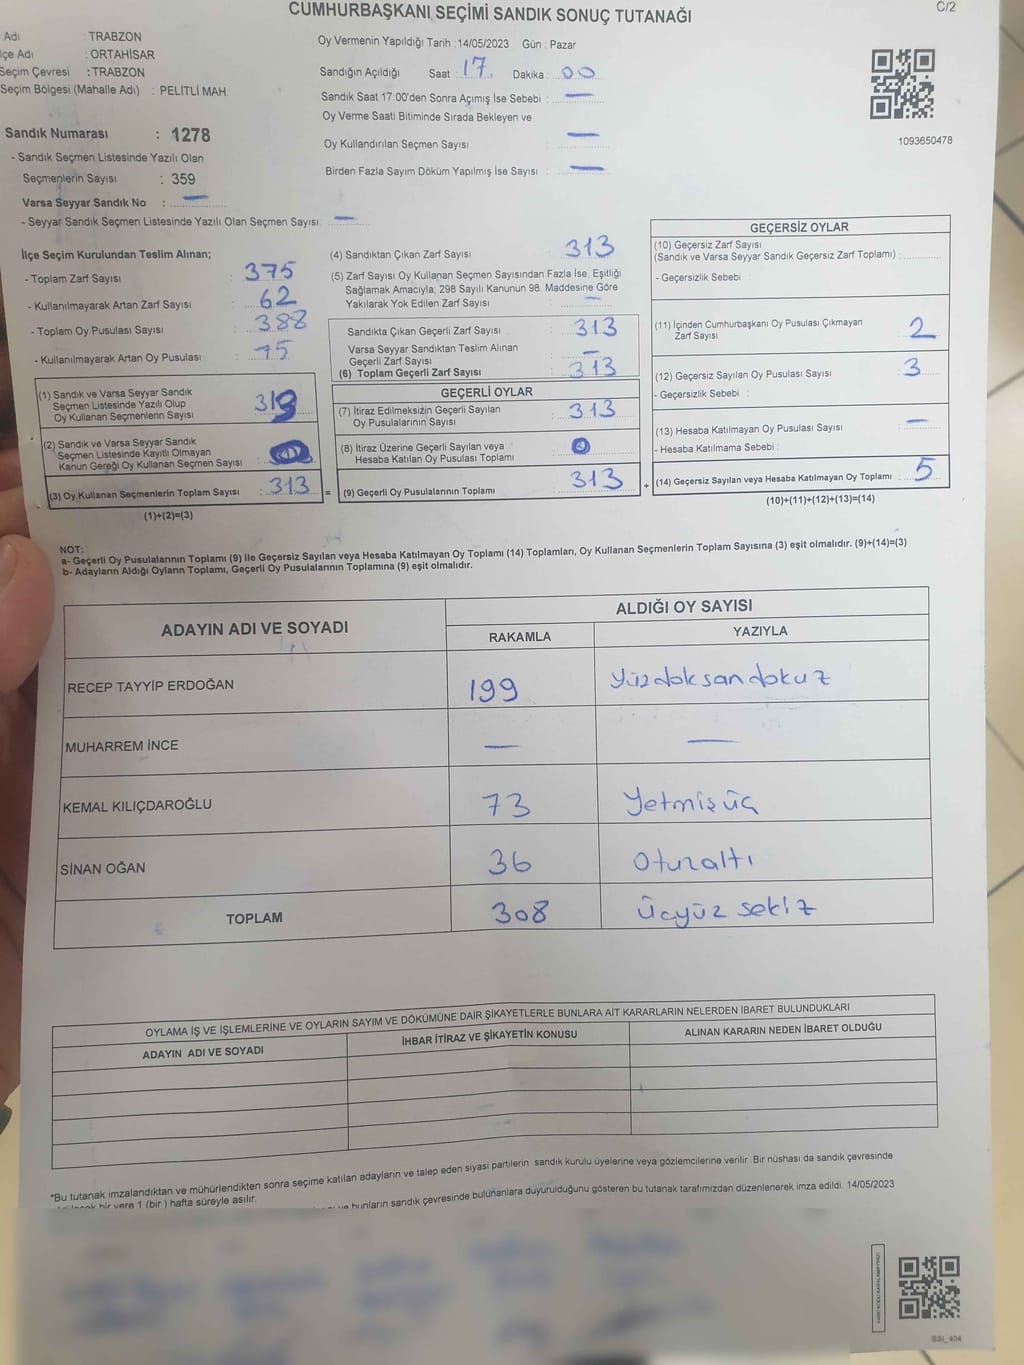 CUMHURBAŞKANI SEÇİMİ SANDIK SONUÇ TUTANAĞI
C/2
Adı : TRABZON
lçe Adı : ORTAHİSAR
Seçim Çevresi : TRABZON
Seçim Bölgesi (Mahalle Adı) : PELİTLİ MAH.
Oy Vermenin Yapıldığı Tarih : 14/05/2023 Gün : Pazar
Sandığın Açıldığı Saat : 17. Dakika : 00
Sandık Saat 17:00'den Sonra Açımış İse Sebebi : —
Oy Verme Saati Bitiminde Sırada Bekleyen ve
Oy Kullandırılan Seçmen Sayısı : —
Birden Fazla Sayım Döküm Yapılmış İse Sayısı : —
1093650478
Sandık Numarası : 1278
- Sandık Seçmen Listesinde Yazılı Olan
Seçmenlerin Sayısı : 359
Varsa Seyyar Sandık No : —
- Seyyar Sandık Seçmen Listesinde Yazılı Olan Seçmen Sayısı: —
İlçe Seçim Kurulundan Teslim Alınan;
- Toplam Zarf Sayısı : 375
- Kullanılmayarak Artan Zarf Sayısı : 62
- Toplam Oy Pusulası Sayısı : 388
- Kullanılmayarak Artan Oy Pusulası : 75
(1) Sandık ve Varsa Seyyar Sandık
Seçmen Listesinde Yazılı Olup
Oy Kullanan Seçmenlerin Sayısı :
(2) Sandık ve Varsa Seyyar Sandık
Seçmen Listesinde Kayıtlı Olmayan
Kanun Gereği Oy Kullanan Seçmen Sayısı :
(3) Oy Kullanan Seçmenlerin Toplam Sayısı : 313 =
(1)+(2)=(3)
(4) Sandıktan Çıkan Zarf Sayısı : 313
(5) Zarf Sayısı Oy Kullanan Seçmen Sayısından Fazla İse, Eşitliği
Sağlamak Amacıyla; 298 Sayılı Kanunun 98. Maddesine Göre
Yakılarak Yok Edilen Zarf Sayısı : —
Sandıkta Çıkan Geçerli Zarf Sayısı : 313
Varsa Seyyar Sandıktan Teslim Alınan
Geçerli Zarf Sayısı : —
(6) Toplam Geçerli Zarf Sayısı : 313
GEÇERLİ OYLAR
(7) İtiraz Edilmeksizin Geçerli Sayılan
Oy Pusulalarının Sayısı : 313
(8) İtiraz Üzerine Geçerli Sayılan veya
Hesaba Katılan Oy Pusulası Toplamı :
(9) Geçerli Oy Pusulalarının Toplamı : 313 +
GEÇERSİZ OYLAR
(10) Geçersiz Zarf Sayısı
(Sandık ve Varsa Seyyar Sandık Geçersiz Zarf Toplamı) :
- Geçersizlik Sebebi :
(11) İçinden Cumhurbaşkanı Oy Pusulası Çıkmayan
Zarf Sayısı : 2
(12) Geçersiz Sayılan Oy Pusulası Sayısı : 3
- Geçersizlik Sebebi :
(13) Hesaba Katılmayan Oy Pusulası Sayısı : —
- Hesaba Katılmama Sebebi :
(14) Geçersiz Sayılan veya Hesaba Katılmayan Oy Toplamı : 5
(10)+(11)+(12)+(13)=(14)
NOT:
a- Geçerli Oy Pusulalarının Toplamı (9) ile Geçersiz Sayılan veya Hesaba Katılmayan Oy Toplamı (14) Toplamları, Oy Kullanan Seçmenlerin Toplam Sayısına (3) eşit olmalıdır. (9)+(14)=(3)
b- Adayların Aldığı Oyların Toplamı, Geçerli Oy Pusulalarının Toplamına (9) eşit olmalıdır.
ADAYIN ADI VE SOYADI
ALDIĞI OY SAYISI
RAKAMLA YAZIYLA
RECEP TAYYİP ERDOĞAN 199 Yüzdoksandokuz
MUHARREM İNCE — —
KEMAL KILIÇDAROĞLU 73 Yetmişüç
SİNAN OĞAN 36 Otuzaltı
TOPLAM 308 Üçyüz sekiz
OYLAMA İŞ VE İŞLEMLERİNE VE OYLARIN SAYIM VE DÖKÜMÜNE DAİR ŞİKAYETLERLE BUNLARA AİT KARARLARIN NELERDEN İBARET BULUNDUKLARI
ADAYIN ADI VE SOYADI İHBAR İTİRAZ VE ŞİKAYETİN KONUSU ALINAN KARARIN NEDEN İBARET OLDUĞU
*Bu tutanak imzalandıktan ve mühürlendikten sonra seçime katılan adayların ve talep eden siyasi partilerin sandık kurulu üyelerine veya gözlemcilerine verilir. Bir nüshası da sandık çevresinde
bir yere 1 (bir ) hafta süreyle asılır.
ve bunların sandık çevresinde bulunanlara duyurulduğunu gösteren bu tutanak tarafımızdan düzenlenerek imza edildi. 14/05/2023
SSI_404